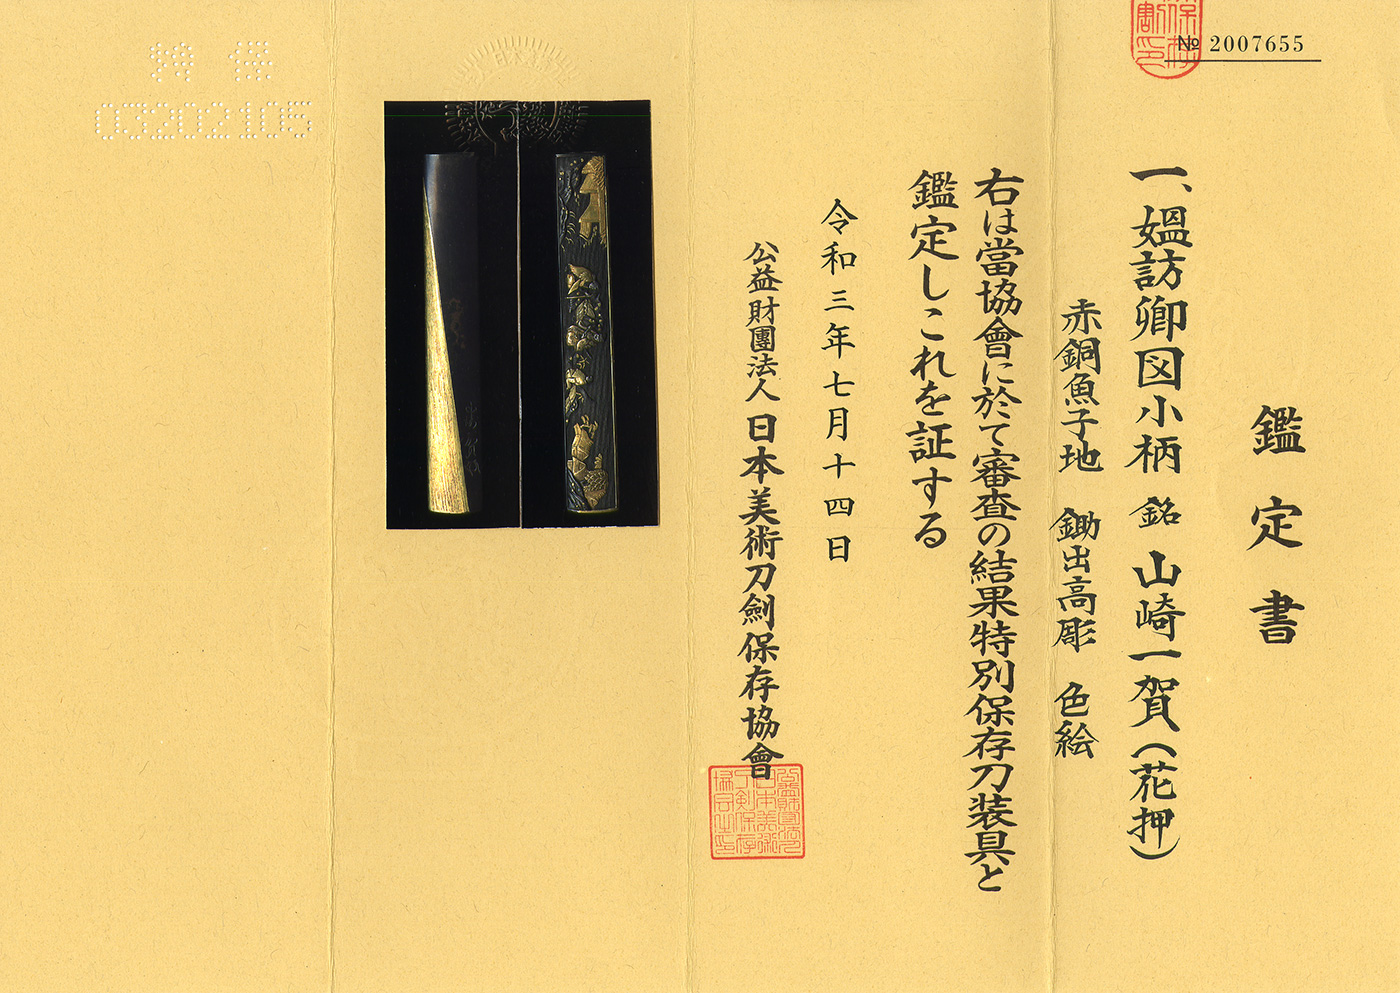 № 2007655
鑑定書
一、媼訪卿図小柄 銘 山崎一賀(花押)
赤銅魚子地 鋤出高彫 色絵
右は當協會に於て審査の結果特別保存刀装具と
鑑定しこれを証する
令和三年七月十四日
公益財團法人 日本美術刀劍保存協會
特保
03202105